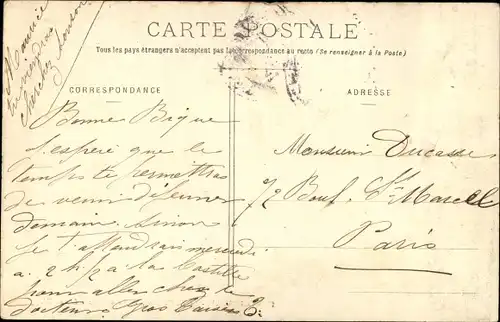 Maurice
tu viendras
chercher
CARTE POSTALE
Tous les pays étrangers n'acceptent pas la correspondance au recto (Se renseigner à la Poste)
CORRESPONDANCE
ADRESSE
Bonne Bique
J'espère que le
temps te permettra
de venir déjeuner
demain. Sinon
Je t'attendrai mercredi
a 2h 1/2 a la Bastille
pour aller chez le
docteur. Gros Baisers E.
Monsieur Ducasse
72 Boul. St Marcel
Paris